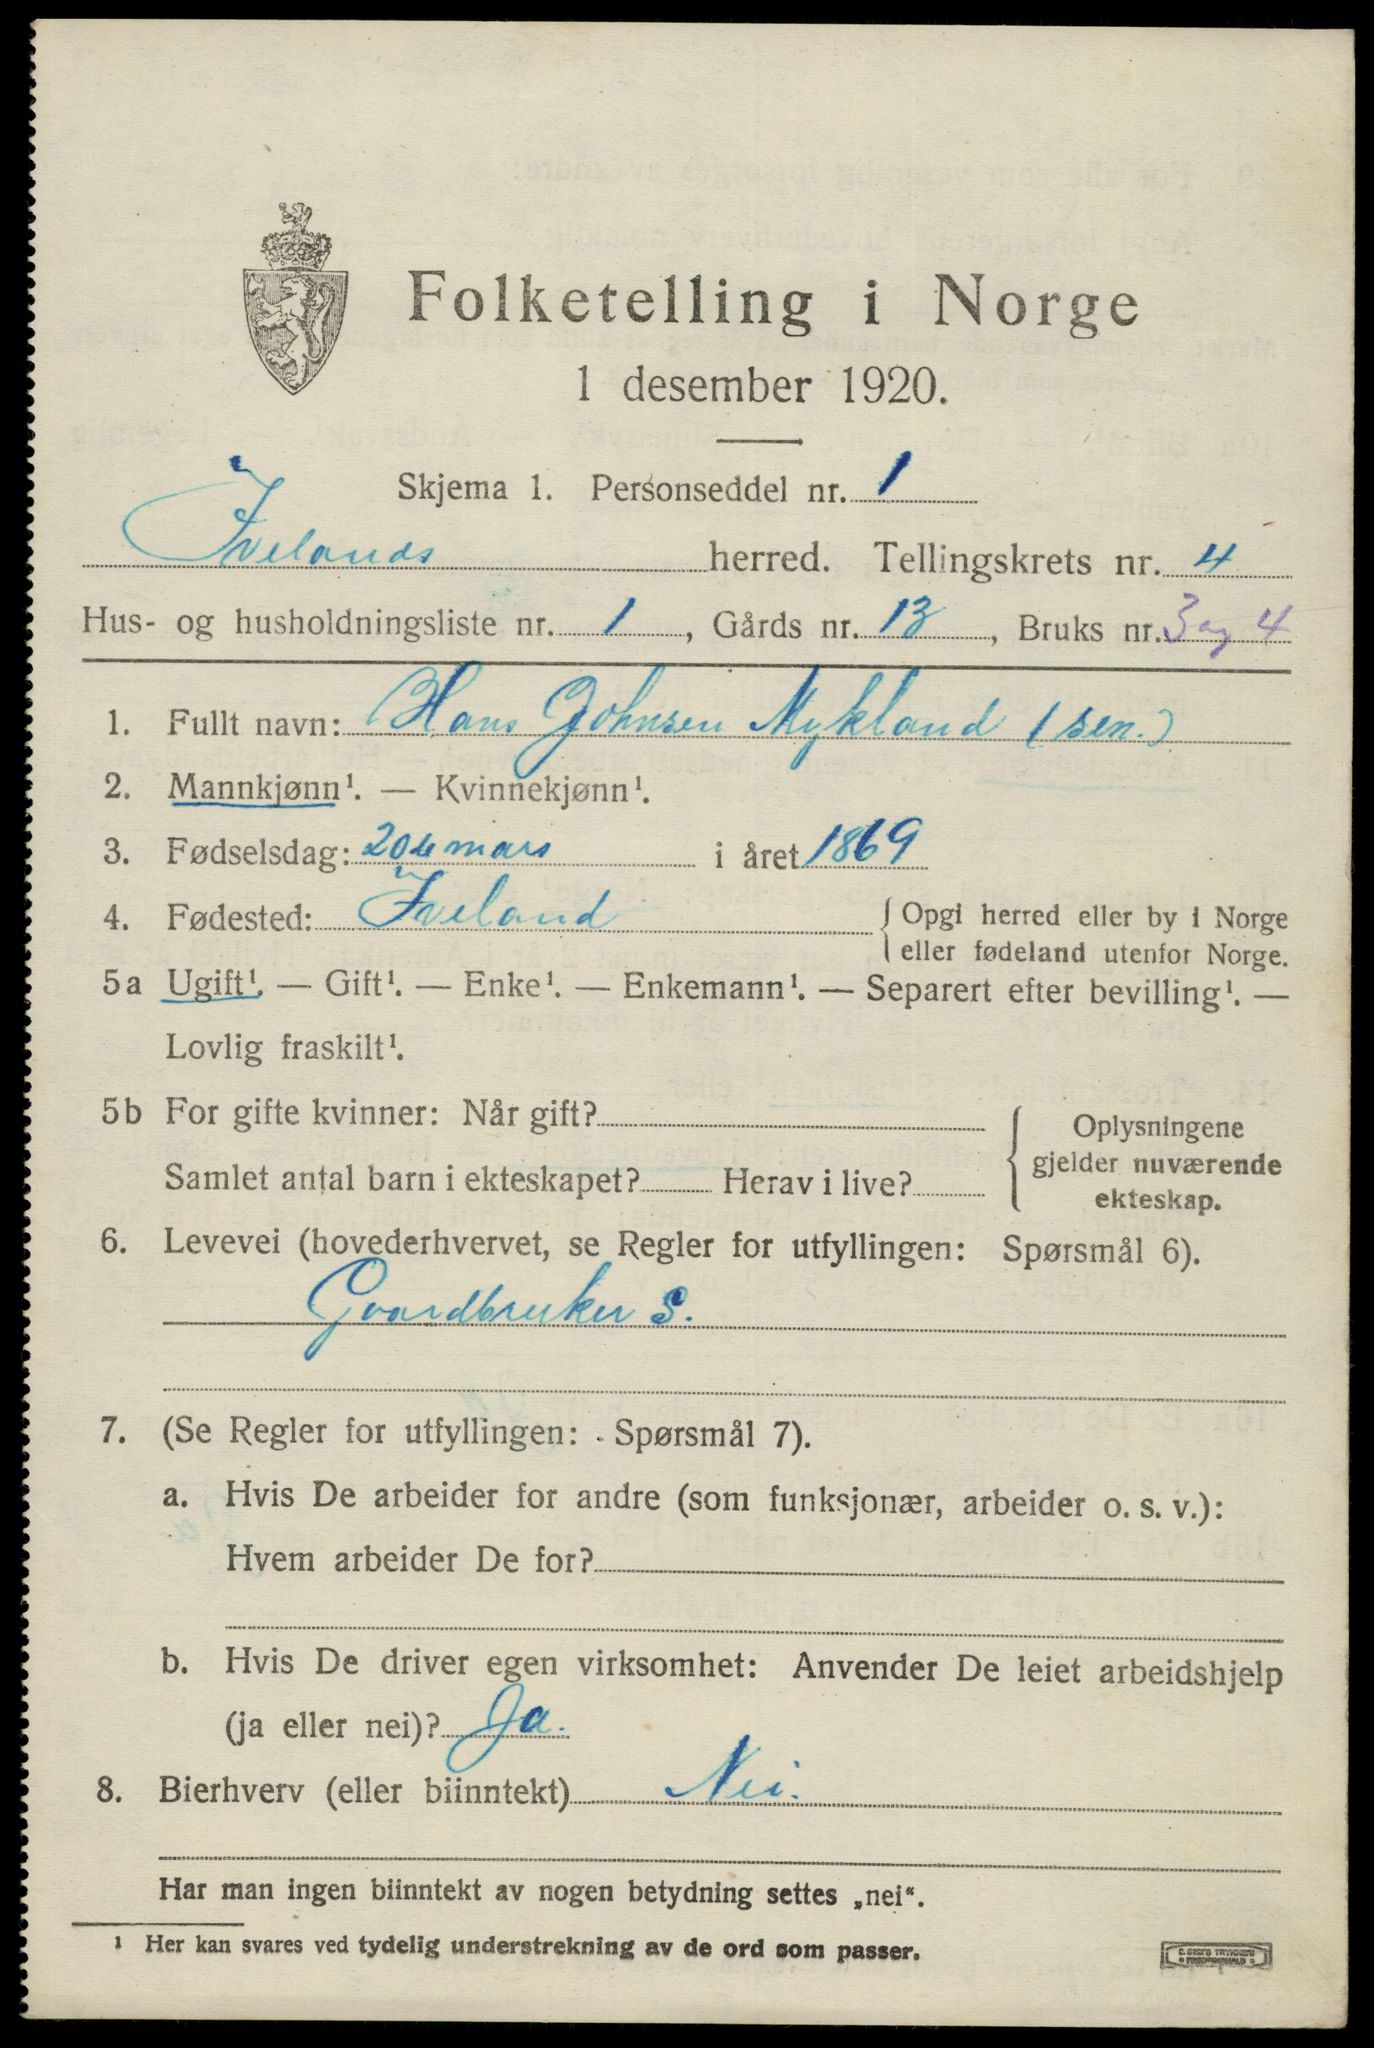 Folketelling i Norge
1 desember 1920.
Skjema 1. Personseddel nr. 1
Ivelands herred. Tellingskrets nr. 4
Hus- og husholdningsliste nr. 1, Gårds nr. 13, Bruks nr. 3 og 4
1. Fullt navn: Hans Johnsen Mykland (sen.)
2. Mannkjønn¹. — Kvinnekjønn¹.
3. Fødselsdag: 20de mars i året 1869
4. Fødested: Iveland { Opgi herred eller by i Norge
eller fødeland utenfor Norge.
5a Ugift¹. — Gift¹. — Enke¹. — Enkemann¹. — Separert efter bevilling¹. —
Lovlig fraskilt¹.
5b For gifte kvinner: Når gift?
Samlet antal barn i ekteskapet? Herav i live?
{ Oplysningene
gjelder nuværende
ekteskap.
6. Levevei (hovederhvervet, se Regler for utfyllingen: Spørsmål 6).
Gaardbruker S.
7. (Se Regler for utfyllingen: Spørsmål 7).
a. Hvis De arbeider for andre (som funksjonær, arbeider o. s. v.):
Hvem arbeider De for?
b. Hvis De driver egen virksomhet: Anvender De leiet arbeidshjelp
(ja eller nei)? Ja.
8. Bierhverv (eller biinntekt) Nei.
Har man ingen biinntekt av nogen betydning settes „nei“.
¹ Her kan svares ved tydelig understrekning av de ord som passer.